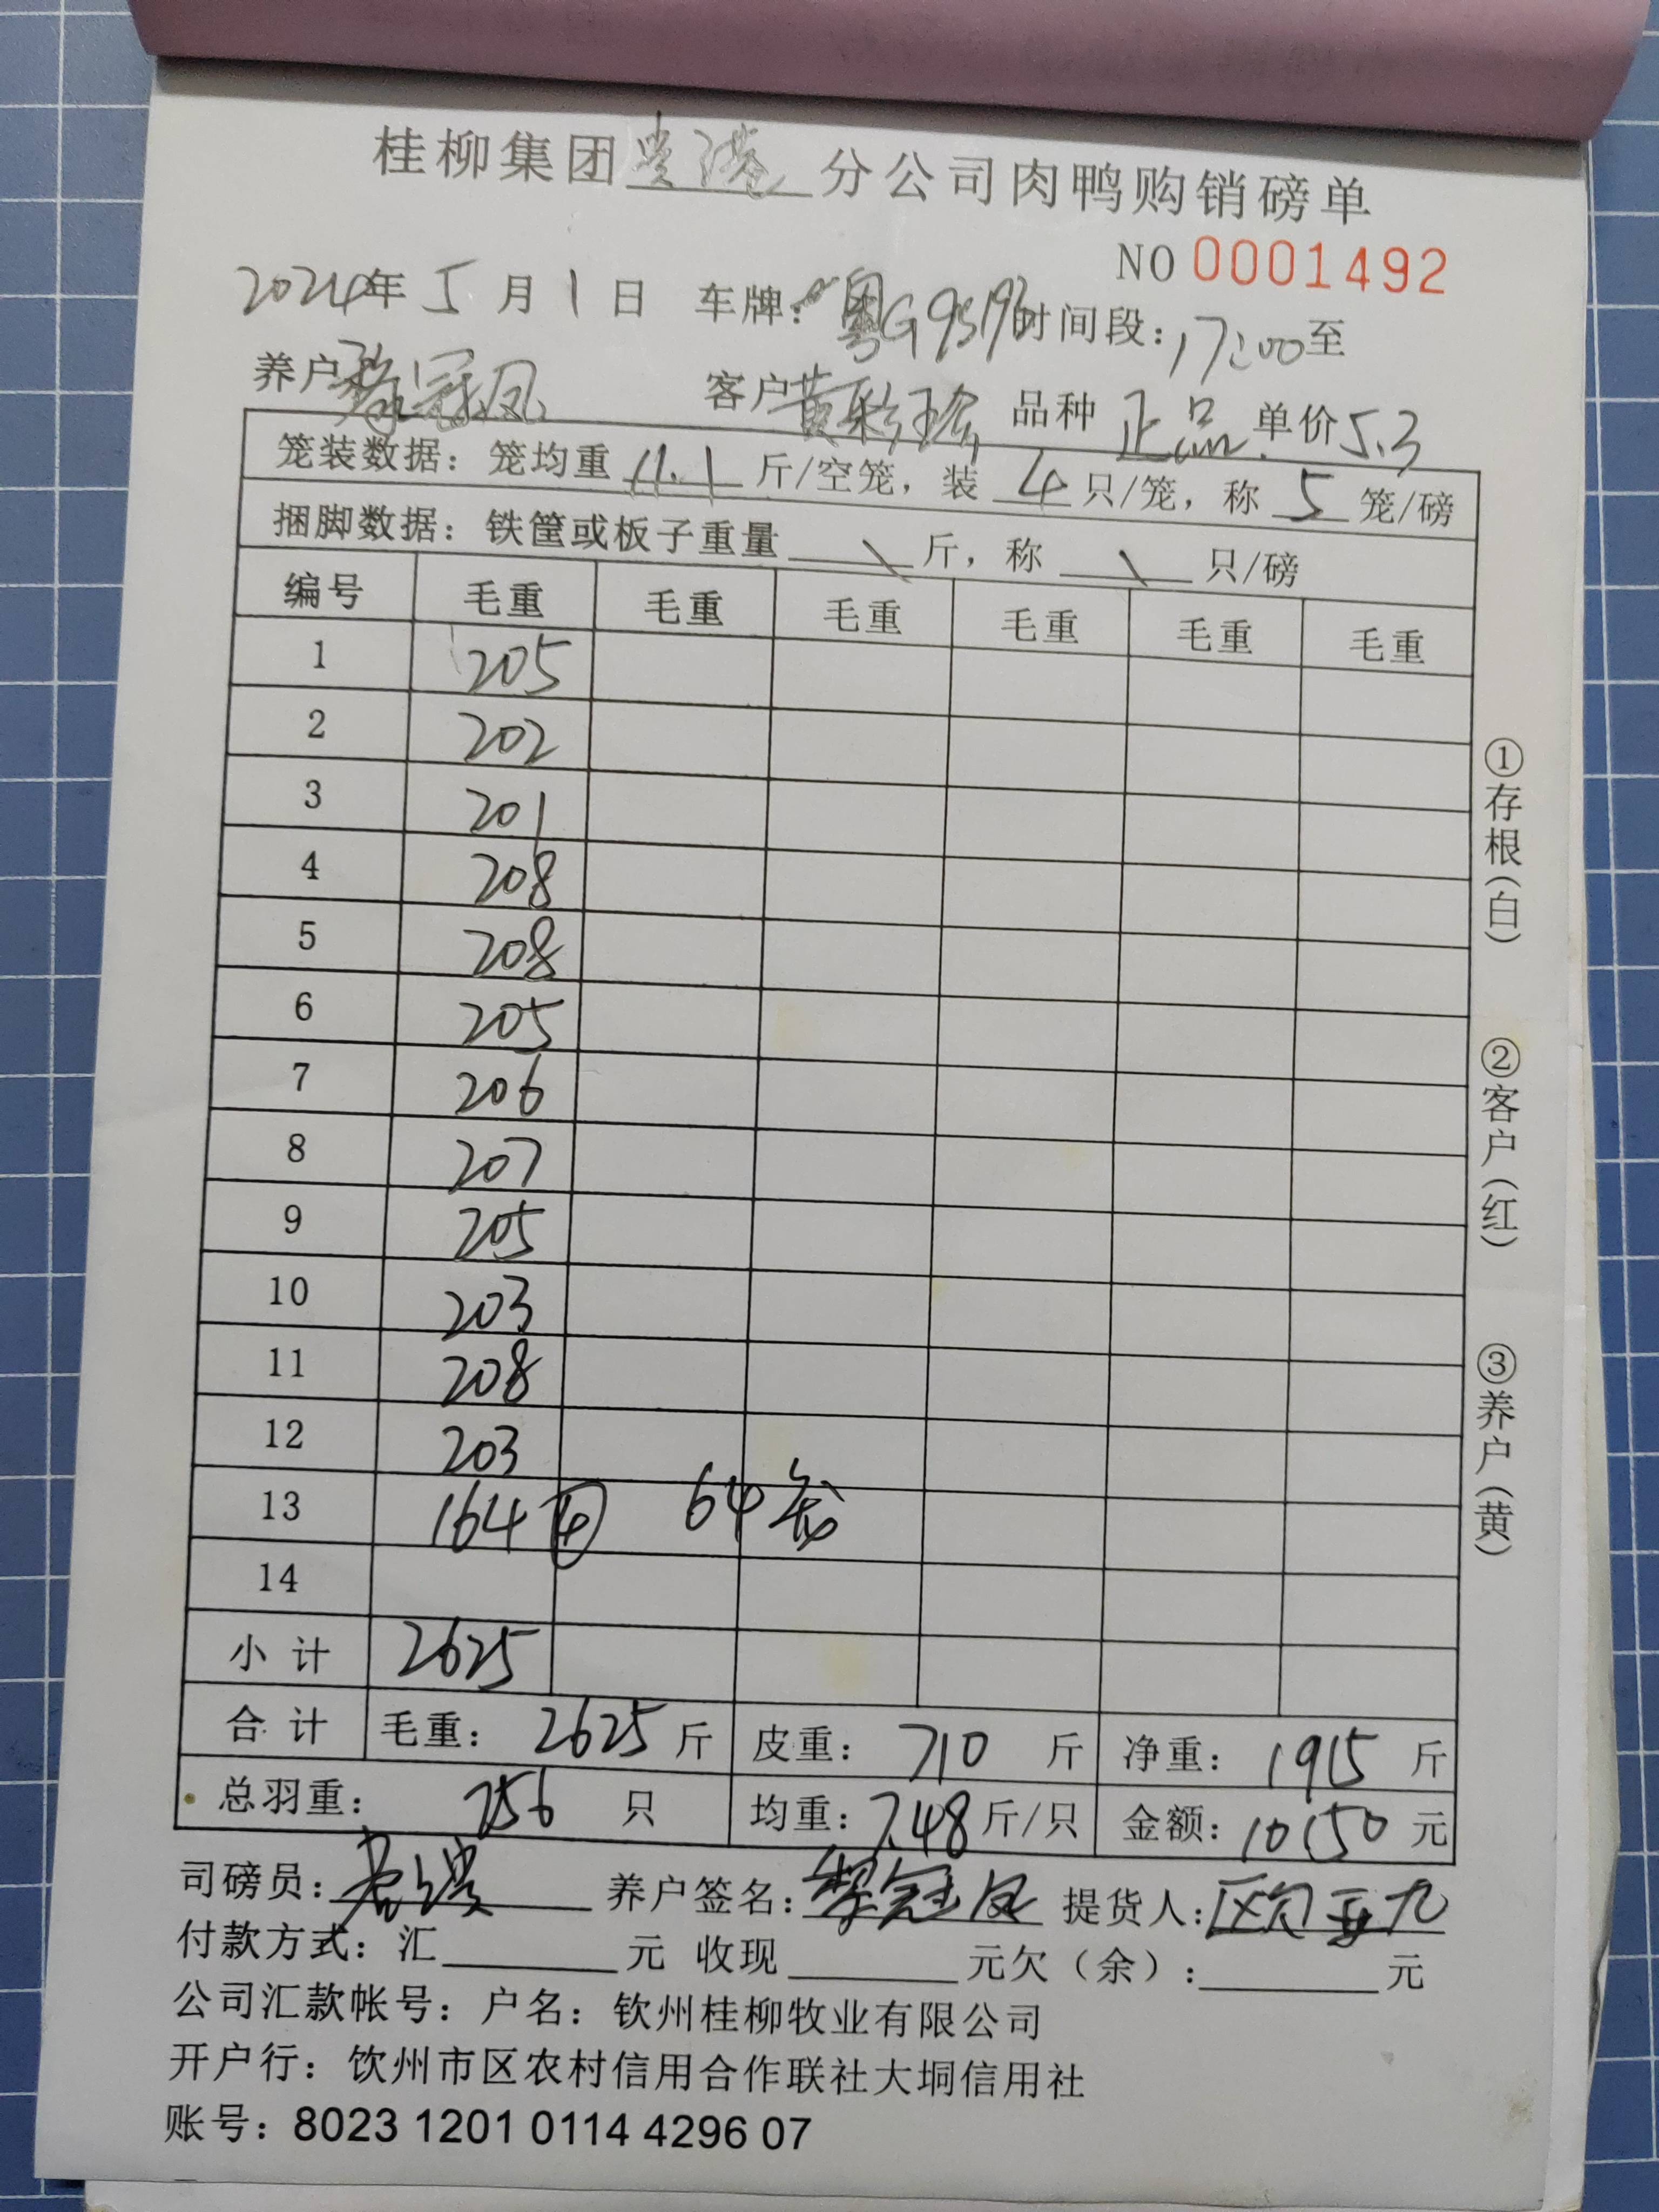 桂柳集团贵港分公司肉鸭购销磅单
NO 0001492
2024年 5 月 1 日 车牌: 粤G95193 时间段: 17:00 至
养户 黎冠凤 客户 黄彩 品种 正品 单价 5.3
笼装数据: 笼均重 11.1 斤/空笼, 装 4 只/笼, 称 5 笼/磅
捆脚数据: 铁筐或板子重量 \ 斤, 称 \ 只/磅
编号 毛重 毛重 毛重 毛重 毛重 毛重
1 205
2 202
3 201
4 208
5 208
6 205
7 206
8 207
9 205
10 203
11 208
12 203
13 164 ④ 64笼
14
小 计 2625
合 计 毛重: 2625 斤 皮重: 710 斤 净重: 1915 斤
总羽重: 256 只 均重: 7.48 斤/只 金额: 10150 元
司磅员: 养户签名: 黎冠凤 提货人: 欧亚九
付款方式: 汇 元 收现 元欠(余): 元
公司汇款帐号: 户名: 钦州桂柳牧业有限公司
开户行: 饮州市区农村信用合作联社大垌信用社
账号: 8023 1201 0114 4296 07
①存根(白)
②客户(红)
③养户(黄)